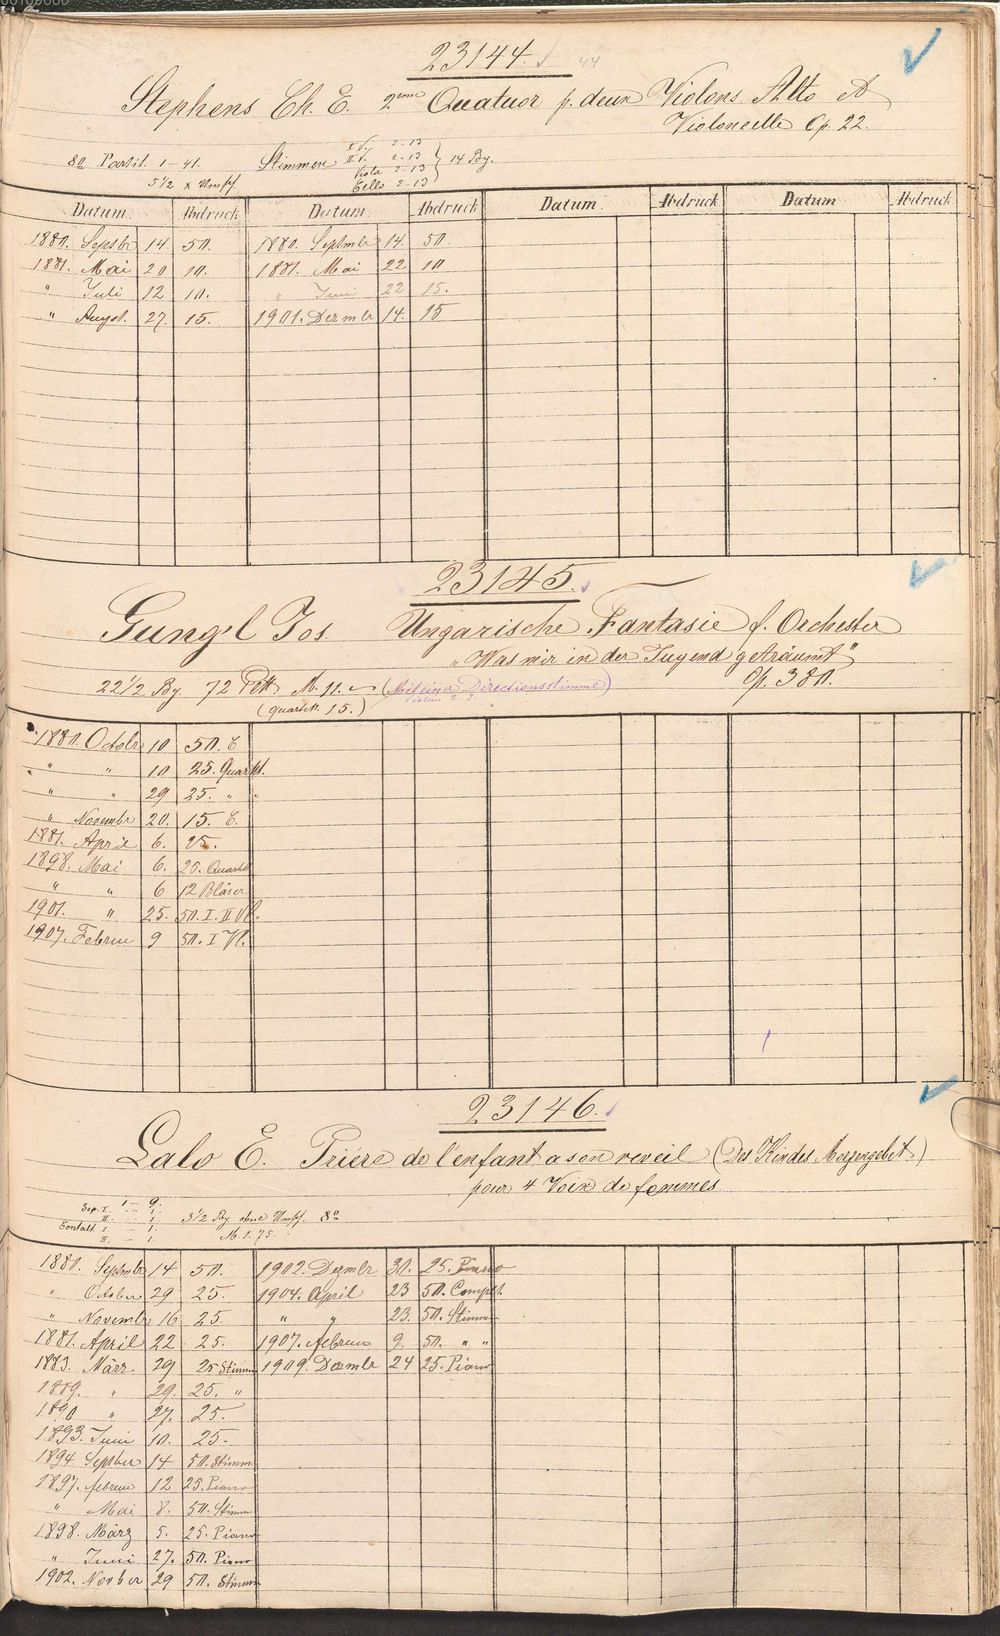 23144.
Stephens Ch. E. 2eme Quatuor p. deux Violons Alto et
Violoncelle Op. 22.
8o Partit. 1-41. Stimmen
I V. 2-13
II V. 2-13
Viola 2-13
Cello 2-13
14 Bg.
5 1/2 x Umschl.
Datum. Abdruck Datum. Abdruck Datum. Abdruck Datum Abdruck
1880. Septbr 14 50. 1880. Septmbr 14. 50.
1881. Mai 20 10. 1881. Mai 22 10
" Juli 12 10. " Juni 22 15.
" Augst. 27. 15. 1901. Dezmbr 14. 15
23145.
Gung'l Jos. Ungarische Fantasie f. Orchester
"Was mir in der Jugend geträumt"
22 1/2 Bg 72 Pltt M. 11. (Mit einer Directionsstimme) Op. 380.
(Quartett. 15.)
1880. Octobr 10 50. C
" " 10 25. Quartt.
" " 29 25. " "
" Novembr 20. 15. C.
1881. April 6. 25.
1898. Mai 6. 25. Quartett
" " 6 12 Bläser
1901. " 25. 50. I. II Vl.
1907. Februar 9 50. I Vl.
23146.
Lalo E. Prière de l'enfant a son reveil (Des Kindes Morgengebet)
pour 4 Voix de femmes
Sop. I. 1-9.
II. - 1.
Contalt. I - 1.
II. - 1.
3 1/2 Bg ohne Umschl. 8o
M. 1.75.
1880. Septmbr 14 50. 1902. Dezmbr 30. 25. Piano
" October 29 25. 1904. April 23 50. Complt.
" Novembr 16 25. " " 23. 50. Stimmen
1881. April 22 25. 1907. Februar 9. 50. " "
1883. März. 29 25 Stimm 1909. Dezmbr 24 25. Piano
1889. " 29. 25. "
1890 " 27. 25.
1893. Juni 10. 25.
1894 Septber 14 50. Stimm
1897. Februar 12 25. Piano
" Mai 8. 50. Stimm
1898. März 5. 25. Piano
" Juni 27. 50. Piano
1902. Novber 29 50. Stimm